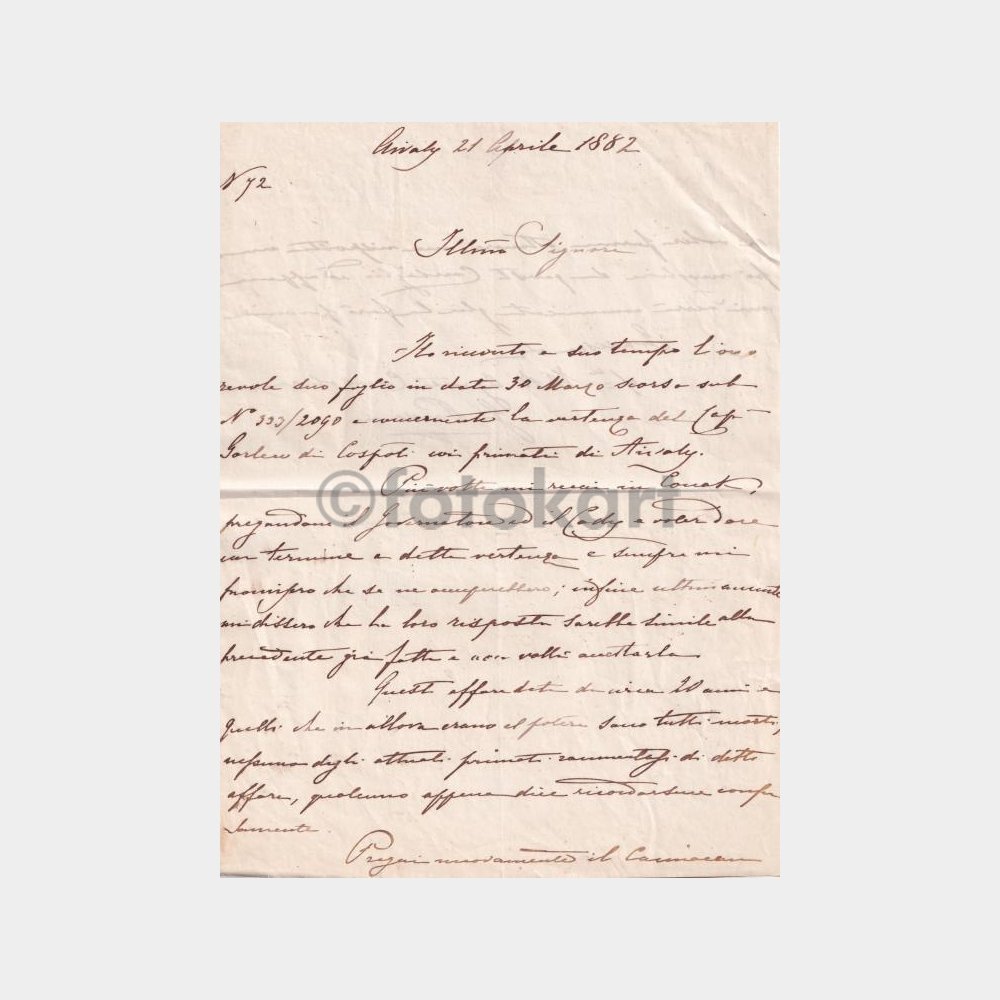 Aivaly 21 Aprile 1882
N 72
Illmo Signore
Ho ricevuto a suo tempo l'ono
revole suo foglio in data 30 Marzo scorso sub
N° 333/2090 concernente la vertenza del Cap
di Cospoli coi primati di Aivaly.
Più volte mi recai in Konak,
pregandone il Governatore ed il Cady a voler dare
un termine a detta vertenza e sempre mi
promisero che se ne occuperebbero; infine ultimamente
mi dissero che la loro risposta sarebbe simile alla
precedente già fatta e non volli accettarla
Questo affare data da circa 20 anni e
quelli che in allora erano al potere sono tutti morti,
nessuno degli attuali primati rammentasi di detto
affare, qualcuno appena dice ricordarsene confu
samente.
Pregai nuovamente il Caimacam
©fotokart